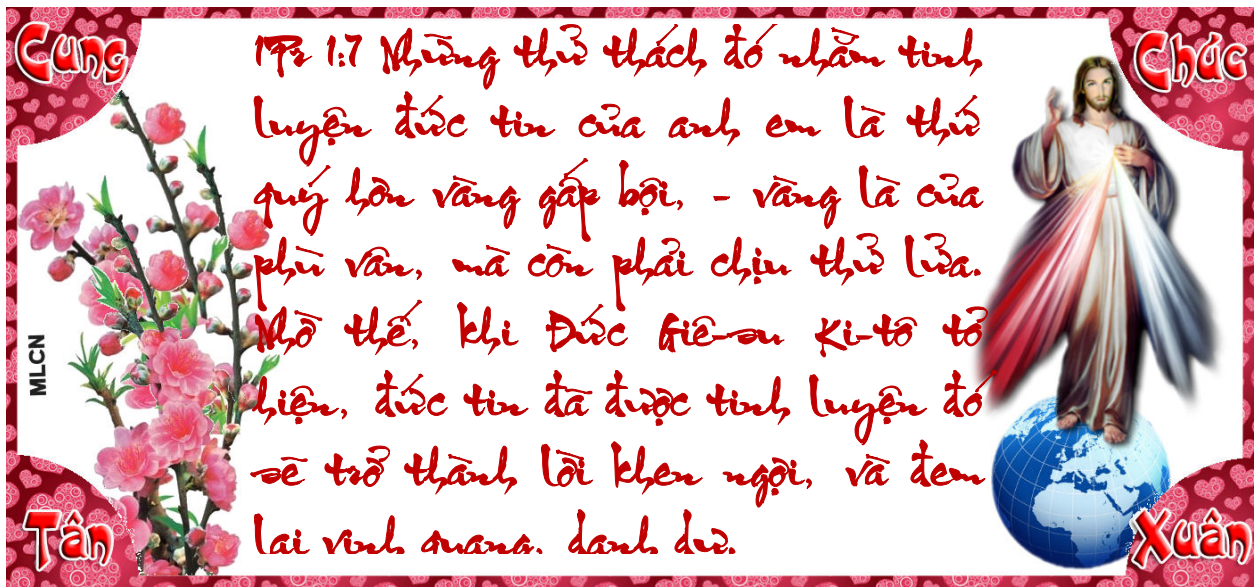 Cung
Chúc
1Pr 1:7 Những thử thách đó nhằm tinh
luyện đức tin của anh em là thứ
quý hơn vàng gấp bội, - vàng là của
phù vân, mà còn phải chịu thử lửa.
Nhờ thế, khi Đức Giê-su Ki-tô tỏ
hiện, đức tin đã được tinh luyện đó
sẽ trở thành lời khen ngợi, và đem
lại vinh quang, danh dự.
MLCN
Tân
Xuân